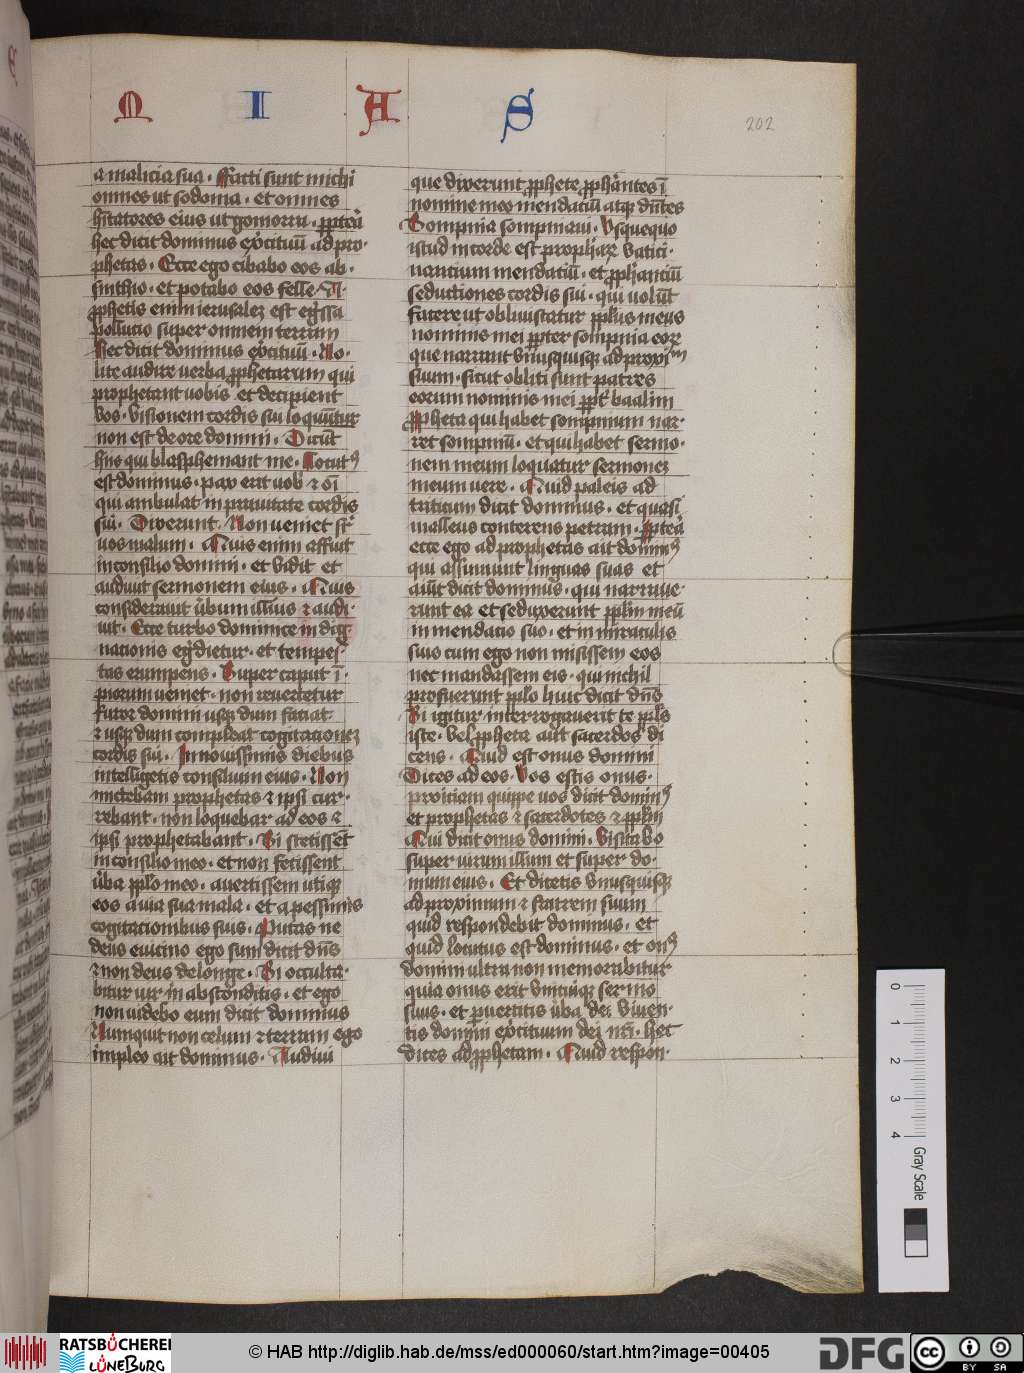 M I A S
202
a malicia sua. Facti sunt michi
omnes ut sodoma. et omnes
hitatores eius ut gomorra. ppterea
hec dicit dominus exercituum ad pro-
phetas. Ecce ego cibabo eos ab-
sinthio. et potabo eos felle. A
pphetis enim ierusalez est egressa
pollutio super omnem terram
Hec dicit dominus exercituum. No-
lite audire verba pphetarum qui
prophetant vobis et decipient
vos. visionem cordis sui loquuntur
non est de ore domini. Dicunt
hiis qui blasphemant me. Locutus
est dominus. pax erit vobis et omni
qui ambulat in pravitate cordis
sui. Dixerunt. Non veniet super
vos malum. Quis enim affuit
in consilio domini. et vidit et
audivit sermonem eius. Quis
consideravit verbum illius et audi-
vit. Ecce turbo dominice indig-
nationis egredietur. et tempes-
tas erumpens. Super caput im-
piorum veniet. non revertetur
furor domini usque dum faciat
et usque dum compleat cogitationez
cordis sui. In novissimis diebus
intelligetis consilium eius. Non
mictebam prophetas et ipsi cur-
rebant. non loquebar ad eos et
ipsi prophetabant. Si stetissent
in consilio meo. et non fecissent
verba pplo meo. avertissem utique
eos a via sua mala. et a pessimis
cogitationibus suis. Putas ne
deus e vicino ego sum dicit dns
et non deus de longe. Si occulta-
bitur vir in absconditis. et ego
non videbo eum dicit dominus
Numquit non celum et terram ego
impleo ait dominus. Audivi
que dixerunt pphete pphantes in
nomine meo mendatium atque dicentes
Sompnia sompniavi. Usquequo
istud in corde est prophare vatici-
nantium mendatium. et pphantium
seductiones cordis sui. qui volunt
facere ut obliviscatur pplus meus
nominis mei ppter sompnia eorum
que narrant unusquisque ad proximum
suum. sicut obliti sunt patres
eorum nominis mei ppter baalim
Ppheta qui habet sompnium nar-
ret sompnium. et qui habet sermo-
nem meum loquatur sermonez
meum vere. Quid paleis ad
triticum dicit dominus. et quasi
malleus conterens petram. Propterea
ecce ego ad prophetas ait dominus
qui assumunt linguas suas et
aiunt dicit dominus. qui narrave-
runt ea et seduxerunt pplm meum
in mendatio suo. et in miraculis
suis cum ego non misissem eos
nec mandassem eis. qui nichil
profuerunt pplo huic dicit dns
Si igitur interrogaverit te pplus
iste. vel ppheta aut sacerdos di
cens. Quid est onus domini
Dices ad eos. Vos estis onus.
proiciam quippe vos dicit dominus
et propheta et sacerdotes et pplm
Qui dicit onus domini. Visitabo
super virum illum et super do-
mum eius. Et dicetis unusquisque
ad proximum et fratrem suum
quid respondebit dominus. et
quid locutus est dominus. et onus
domini ultra non memorabitur
quia onus erit unicuique sermo
suus. et pvertitis verba dei viven-
tis domini exercituum dei nostri. hec
dices ad pphetam. Quid respon-
0 1 2 3 4
Gray Scale
RATSBÜCHEREI
LÜNEBURG
© HAB http://diglib.hab.de/mss/ed000060/start.htm?image=00405
DFG
cc BY SA